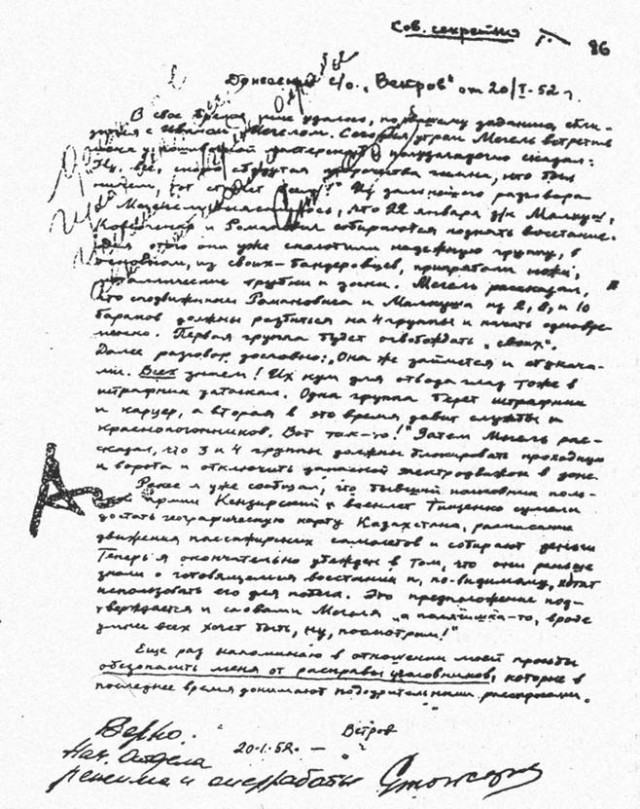 Сов. секретно
86
Донесение с/о „Ветров" от 20/I-52 г.
В свое время мне удалось, по вашему заданию, сбли-
зиться с Иваном Мегелом. Сегодня утром Мегель встретил
меня у портновской мастерской и полузагадочно сказал:
„Ну, все, скоро сбудутся пророчества гимна, кто был
ничем, тот станет всем!" Из дальнейшего разговора
с Мегелем выяснилось, что 22 января з/к Малкуш,
Коверченко и Романович собираются поднять восстание.
Для этого они уже сколотили надежную группу, в
основном, из своих-бандеровцев, припрятали ножи,
металлические трубки и доски. Мегель рассказал,
что сподвижники Романовича и Малкуша из 2, 8, и 10
бараков должны разбиться на 4 группы и начать одновре-
менно. Первая группа будет освобождать „своих".
Далее разговор дословно: „Она же займется и стукача-
ми. Всех знаем! Их кум для отвода глаз тоже в
штрафник затолкал. Одна группа берет штрафник
и карцер, а вторая в это время давит службы и
краснопогонников. Вот так-то!" Затем Мегель рас-
сказал, что 3 и 4 группы должны блокировать проходную
и ворота и отключить запасной электродвижок в зоне.
Ранее я уже сообщал, что бывший полковник поль-
ской армии Кензирский и военлет Тищенко сумели
достать географическую карту Казахстана, расписание
движения пассажирских самолетов и собирают деньги
Теперь я окончательно убежден в том, что они раньше
знали о готовящемся восстании и, по-видимому, хотят
использовать его для побега. Это предположение под-
тверждается и словами Мегеля „а полячишка-то, вроде
умнее всех хочет быть, ну, посмотрим!"
Еще раз напоминаю в отношении моей просьбы
обезопасить меня от расправы уголовников, которые в
последнее время донимают подозрительными расспросами.
Ветров
20.1.52
Верно.
Нач. отдела
режима и оперработы